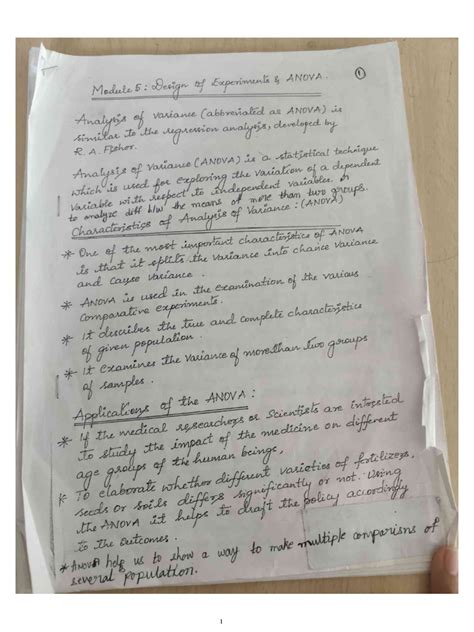 Module 5: Design of Experiments & ANOVA. ①
Analysis of variance (abbreviated as ANOVA) is
similar to the regression analysis, developed by
R. A. Fisher.
Analysis of Variance (ANOVA) is a statistical technique
which is used for exploring the variation of a dependent
variable with respect to independent variables. or
to analyze diff b/w the means of more than two groups.
Characteristics of Analysis of Variance: (ANOVA)
* One of the most important characteristics of ANOVA
is that it splits the variance into chance variance
and cause variance.
* ANOVA is used in the examination of the various
comparative experiments.
* It describes the true and complete characteristics
of given population.
* It examines the variance of more than two groups
of samples.
Applications of the ANOVA:
* If the medical researchers or scientists are intrested
to study the impact of the medicine on different
age groups of the human beings,
* To elaborate whether different varieties of fertilizers,
seeds or soils differs significantly or not. Using
the ANOVA it helps to draft the policy accordingly
to the outcomes.
* ANOVA help us to show a way to make multiple comparisns of
several population.
1